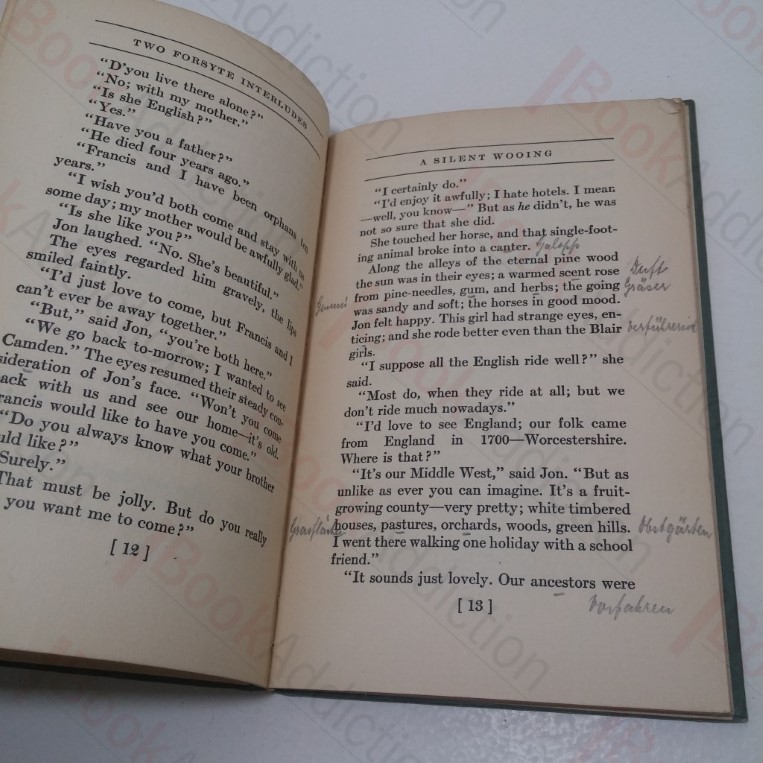 TWO FORSYTE INTERLUDES
"D'you live there alone?"
"No; with my mother."
"Is she English?"
"Yes."
"Have you a father?"
"He died four years ago."
"Francis and I have been orphans ten
years."
"I wish you'd both come and stay with us
some day; my mother would be awfully glad."
"Is she like you?"
Jon laughed. "No. She's beautiful."
The eyes regarded him gravely, the lips
smiled faintly.
"I'd just love to come, but Francis and I
can't ever be away together."
"But," said Jon, "you're both here."
"We go back to-morrow; I wanted to see
Camden." The eyes resumed their steady con-
sideration of Jon's face. "Won't you come
back with us and see our home—it's old.
Francis would like to have you come."
"Do you always know what your brother
would like?"
"Surely."
"That must be jolly. But do you really
you want me to come?"
[ 12 ]
A SILENT WOOING
"I certainly do."
"I'd enjoy it awfully; I hate hotels. I mean
—well, you know—" But as he didn't, he was
not so sure that she did.
She touched her horse, and that single-foot-
ing animal broke into a canter. Galopp
Along the alleys of the eternal pine wood
the sun was in their eyes; a warmed scent rose Duft
from pine-needles, gum, and herbs; the going Gräser
was sandy and soft; the horses in good mood.
Jon felt happy. This girl had strange eyes, en-
ticing; and she rode better even than the Blair
girls.
"I suppose all the English ride well?" she
said.
"Most do, when they ride at all; but we
don't ride much nowadays."
"I'd love to see England; our folk came
from England in 1700—Worcestershire.
Where is that?"
"It's our Middle West," said Jon. "But as
unlike as ever you can imagine. It's a fruit-
growing county—very pretty; white timbered
houses, pastures, orchards, woods, green hills. Obstgärten
I went there walking one holiday with a school
friend."
"It sounds just lovely. Our ancestors were
[ 13 ] Vorfahren